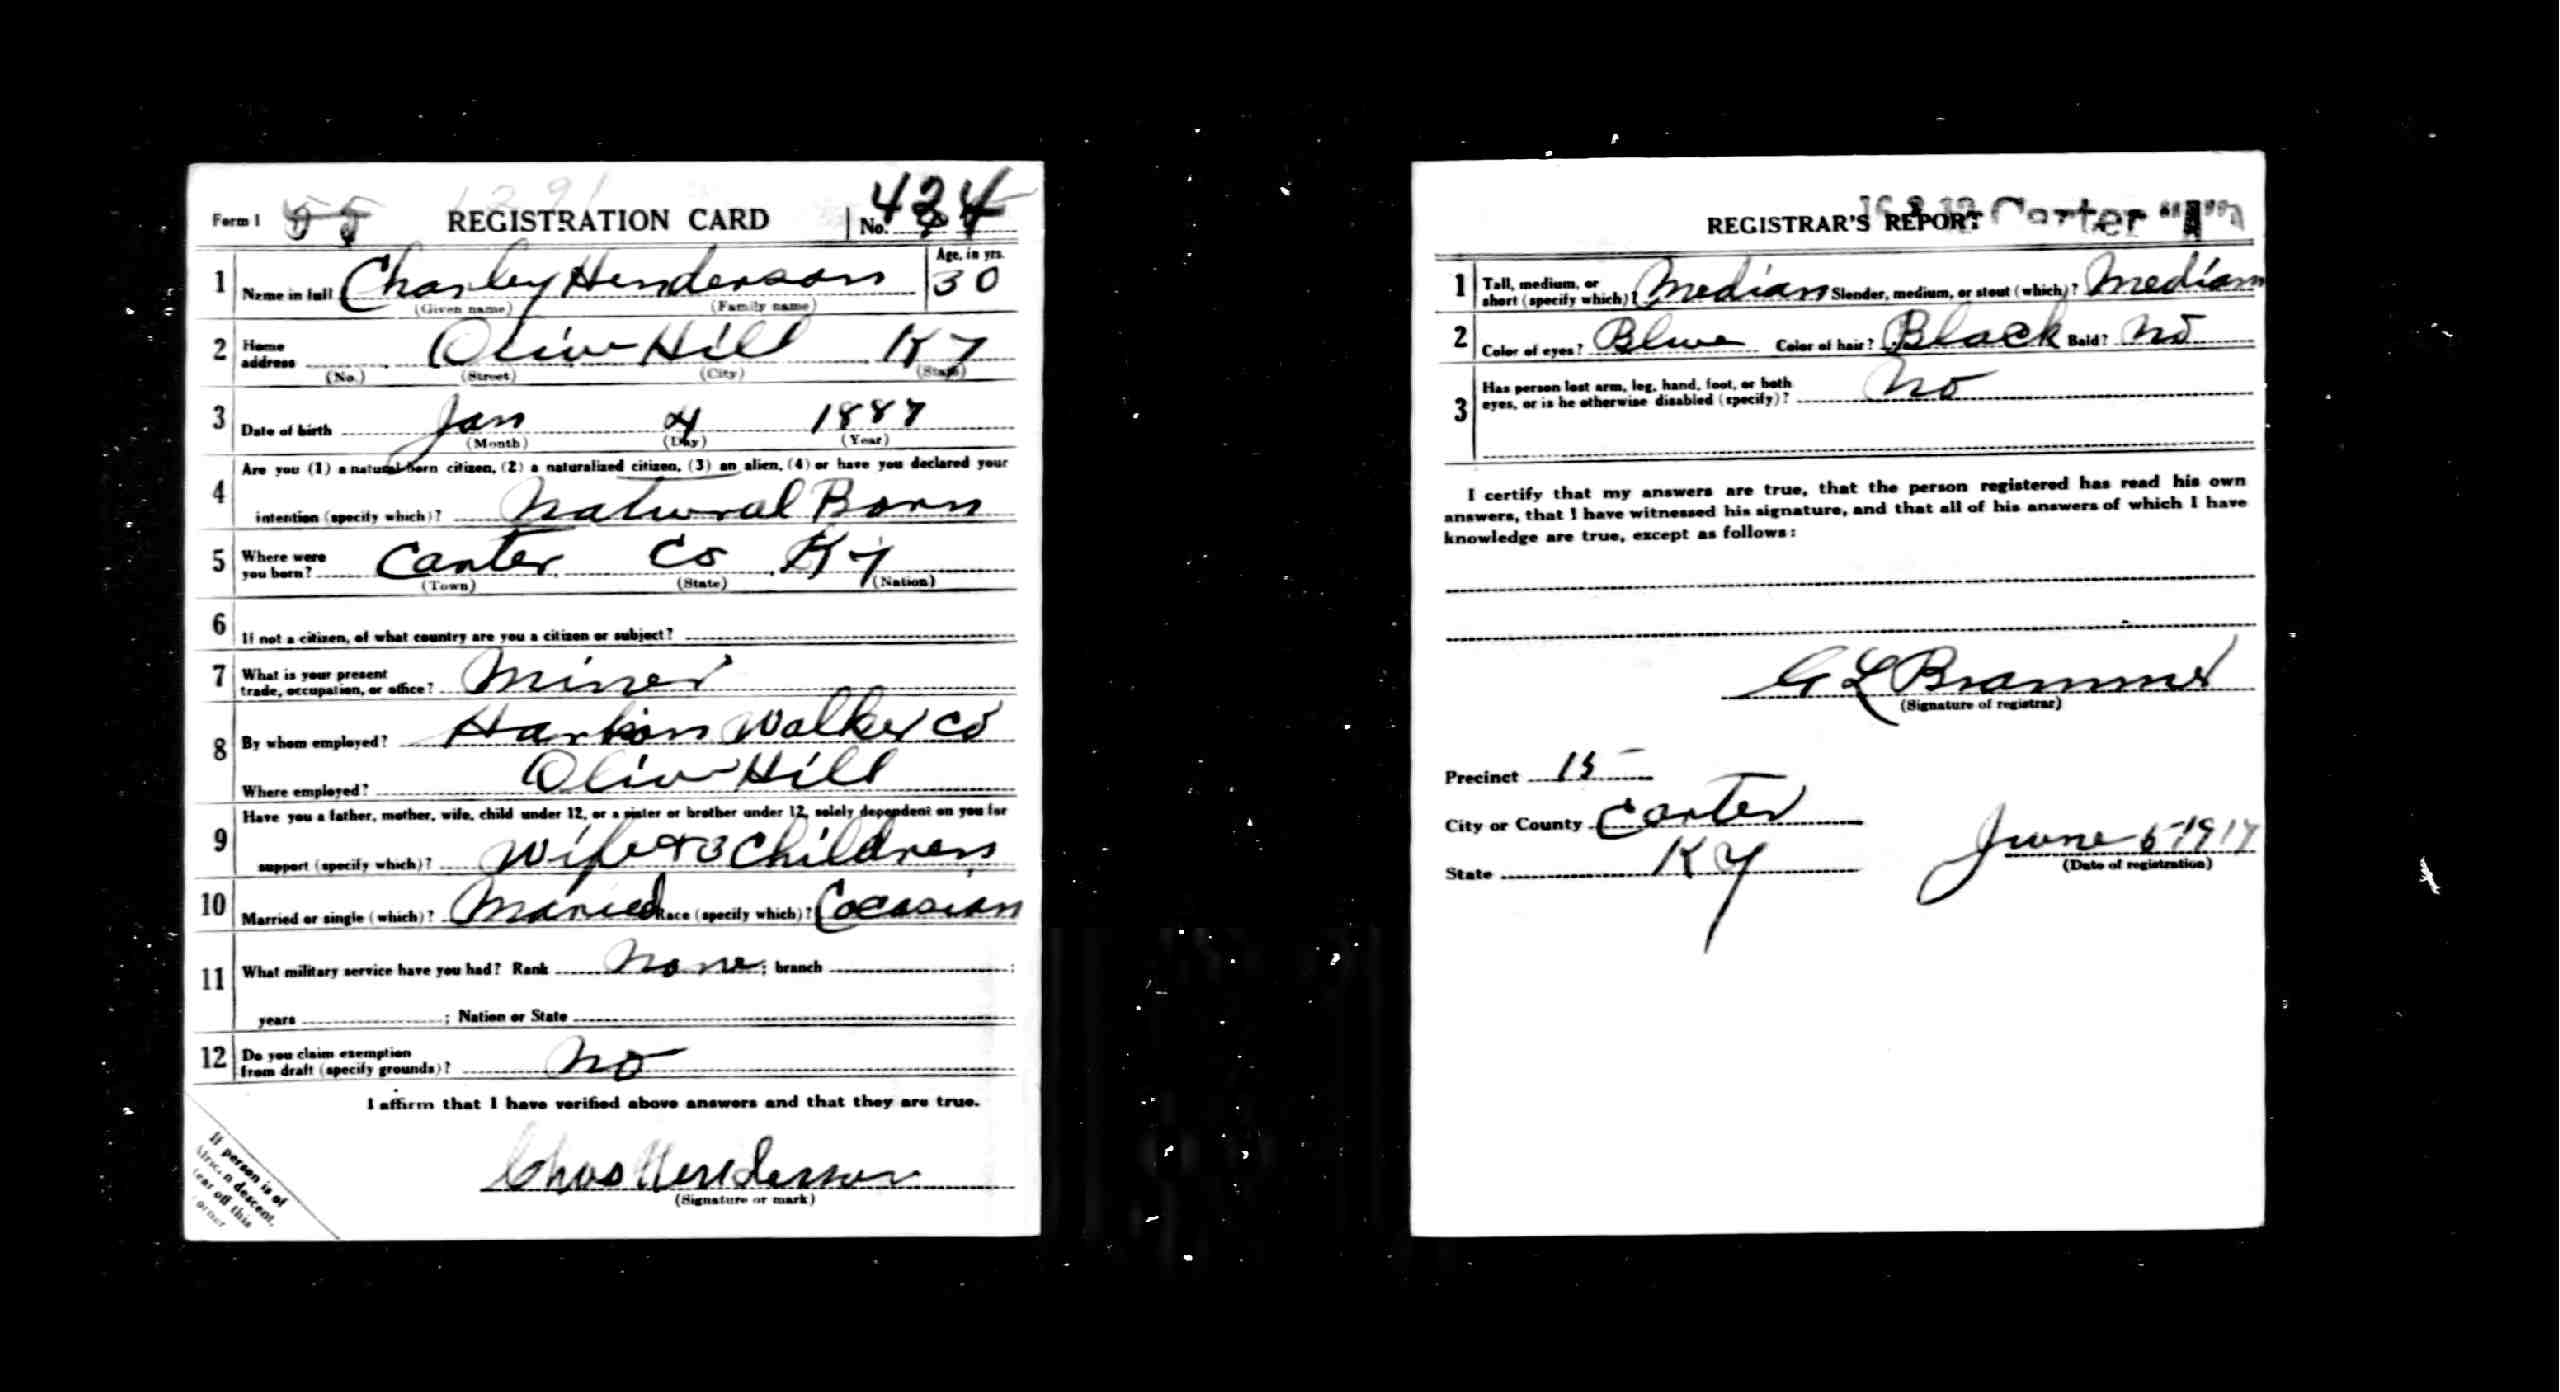 Form 1 55 REGISTRATION CARD No. 434
1 Name in full Charley Henderson Age, in yrs. 30
(Given name) (Family name)
2 Home address Oliv Hill Ky
(No.) (Street) (City) (State)
3 Date of birth Jan 4 1887
(Month) (Day) (Year)
4 Are you (1) a natural-born citizen, (2) a naturalized citizen, (3) an alien, (4) or have you declared your
intention (specify which)? Natural Born
5 Where were you born? Carter Co Ky
(Town) (State) (Nation)
6 If not a citizen, of what country are you a citizen or subject?
7 What is your present
trade, occupation, or office? Miner
8 By whom employed? Harbison Walker Co
Where employed? Oliv Hill
9 Have you a father, mother, wife, child under 12, or a sister or brother under 12, solely dependent on you for
support (specify which)? Wife & 3 Childrens
10 Married or single (which)? Maried Race (specify which)? Cocasian
11 What military service have you had? Rank None; branch ;
years ; Nation or State
12 Do you claim exemption
from draft (specify grounds)? No
I affirm that I have verified above answers and that they are true.
Chas Henderson
(Signature or mark)
If person is of
African descent,
tear off this
corner
REGISTRAR'S REPORT Carter
1 Tall, medium, or
short (specify which)? Median Slender, medium, or stout (which)? Median
2 Color of eyes? Blue Color of hair? Black Bald? No
3 Has person lost arm, leg, hand, foot, or both
eyes, or is he otherwise disabled (specify)? No
I certify that my answers are true, that the person registered has read his own
answers, that I have witnessed his signature, and that all of his answers of which I have
knowledge are true, except as follows:
G L Brammer
(Signature of registrar)
Precinct 15
City or County Carter
State Ky
June 5-1917
(Date of registration)